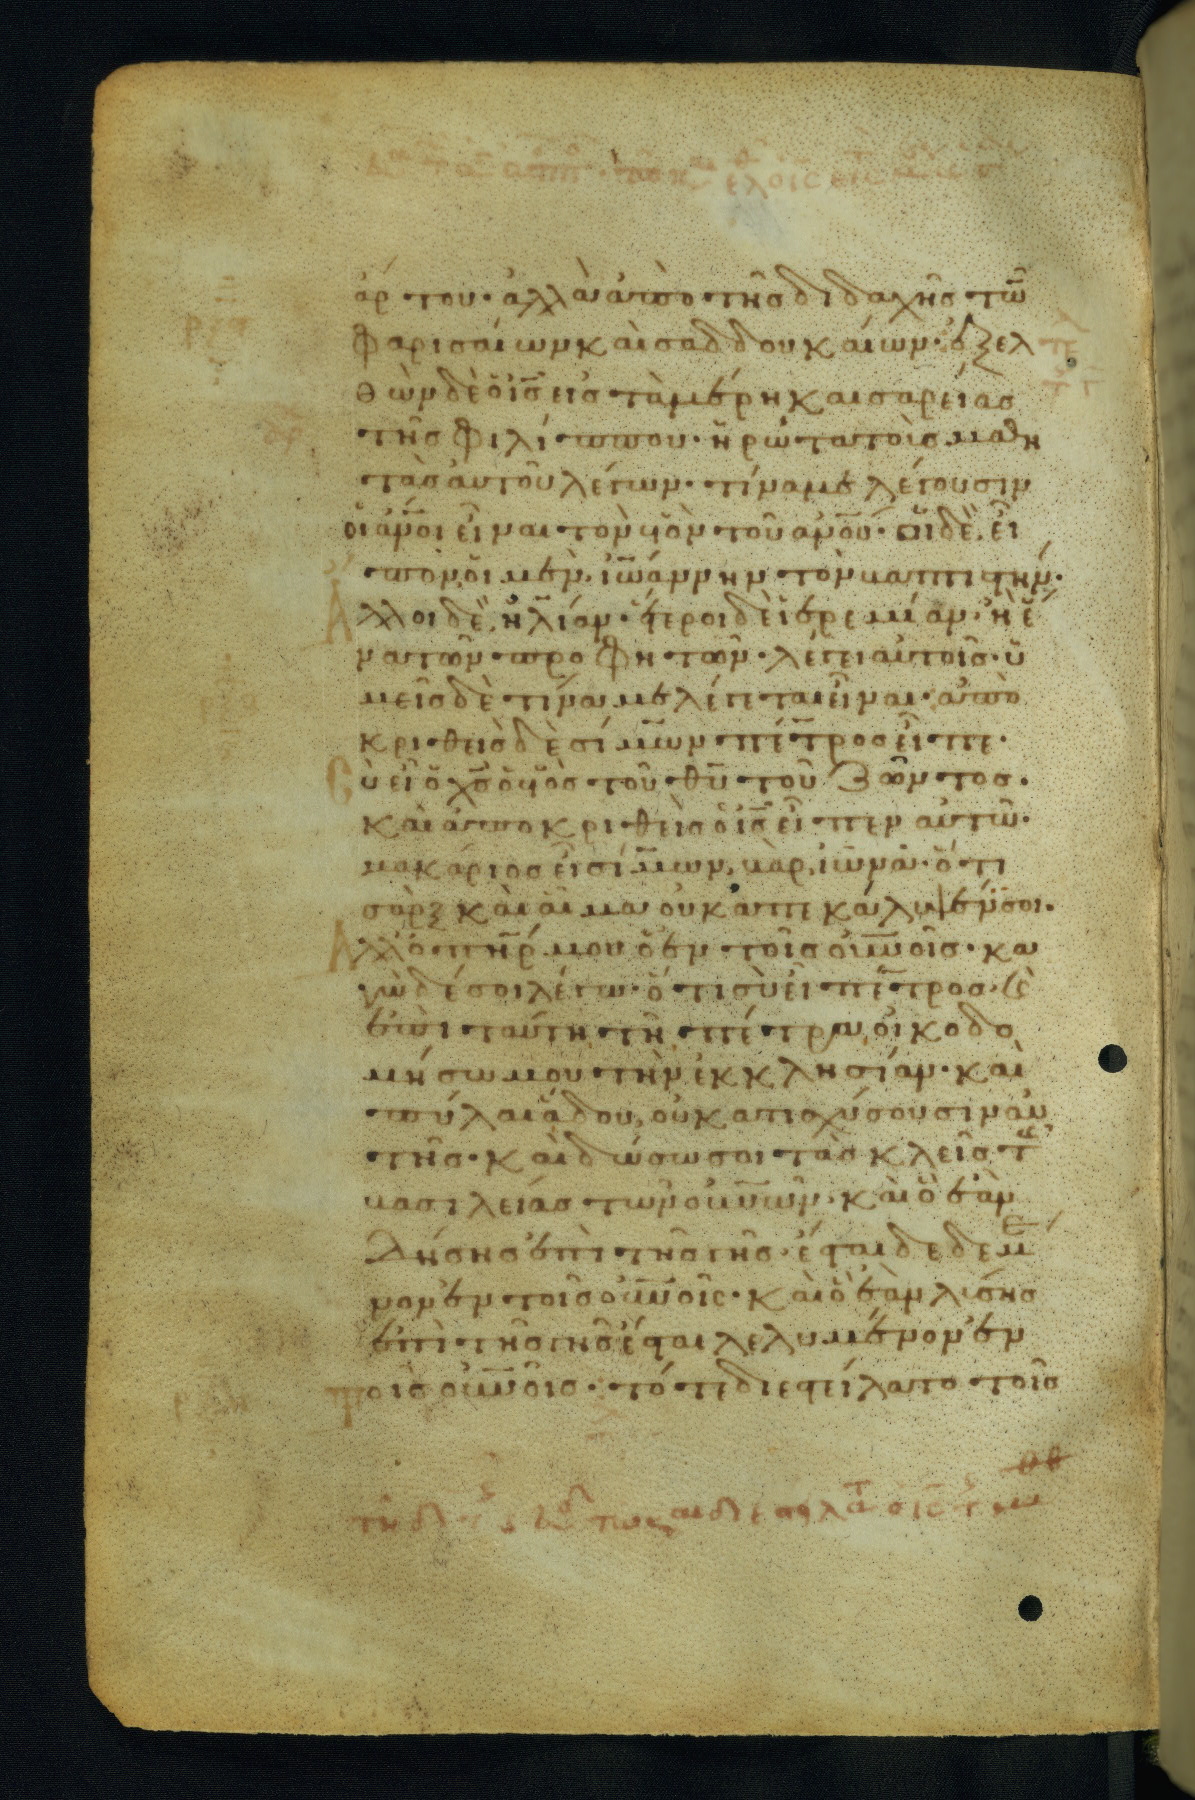 ἄρτου· ἀλλὰ ἀπὸ τῆς διδαχῆς τῶ̅
φαρισαίων καὶ σαδδουκαίων· ἐξελ
θὼν δὲ ὁ ι̅ς̅ εἰς τὰ μέρη καισαρείας
τῆς φιλίππου· ἠρώτα τοὺς μαθη
τὰς αὐτοῦ λέγων· τίνα με λέγουσιν
οἱ α̅ν̅οι εἶναι τὸν υἱὸν τοῦ α̅ν̅ου· οἱ δὲ εἶ
πον· οἱ μὲν ἰω̅άννην τὸν βαπτιστήν·
Ἄλλοι δὲ ἠλίαν· ἕτεροι δὲ ἱερεμίαν· ἢ ἕ
να τῶν προφητῶν· λέγει αὐτοῖς· ὑ
μεῖς δὲ τίνα με λέγεται εἶναι· ἀπο
κριθεὶς δὲ σίμων πέτρος εἶπε·
Σὺ εἶ ὁ χ̅ς̅ ὁ υἱὸς τοῦ θ̅υ̅ τοῦ ζῶντος·
καὶ ἀποκριθεὶς ὁ ι̅ς̅ εἶπεν αὐτῶ·
μακάριος εἶ σίμων, βὰρ ἰωνᾶ· ὅτι
σὰρξ καὶ αἷμα οὐκ ἀπεκάλυψέν σοι·
Ἀλλ' ὁ π̅η̅ρ̅ μου ὁ ἐν τοῖς ο̅υ̅νοῖς· κα
γὼ δέ σοι λέγω· ὅτι σὺ εἶ πέτρος· κ̀
ἐπὶ ταύτη τῆ πέτρα, οἰκοδο
μήσω μου τὴν ἐκκλησίαν· καὶ
πύλαι ἅδου, οὐ κατισχύσουσιν αὐ
τῆς· καὶ δώσω σοι τὰς κλεῖς τῆς
βασιλείας τῶν ο̅υ̅νῶν· καὶ ὃ ἐὰν
δήσης ἐπὶ τῆς γῆς· ἔσται δεδεμέ
νον ἐν τοῖς ο̅υ̅νοῖς· καὶ ὃ ἐὰν λύσης
ἐπὶ τῆς γῆς ἔσται λελυμένον ἐν
τοῖς ο̅υ̅νοῖς· τότε διεστείλατο τοῖς